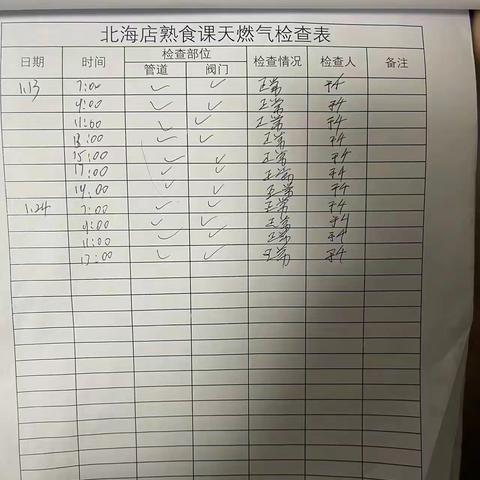 北海店熟食课天燃气检查表
日期 时间 检查部位 检查情况 检查人 备注
管道 阀门
1.13 7:00 ✓ ✓ 正常
9:00 ✓ ✓ 正常
11:00 ✓ ✓ 正常
13:00 ✓ ✓ 正常
15:00 ✓ ✓ 正常
17:00 ✓ ✓ 正常
19:00 ✓ ✓ 正常
1.24 7:00 ✓ ✓ 正常
9:00 ✓ ✓ 正常
11:00 ✓ ✓ 正常
13:00 ✓ ✓ 正常